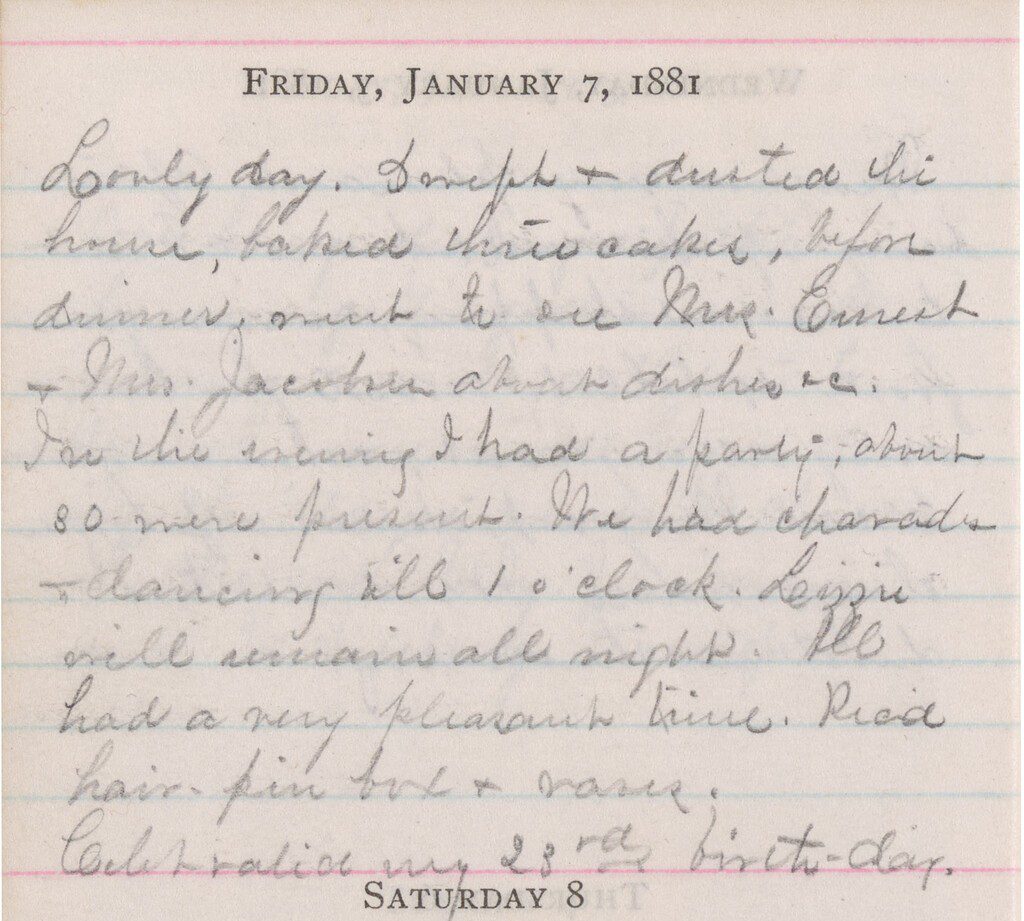 FRIDAY, JANUARY 7, 1881
Lovely day. Swept + dusted the
house, baked three cakes, before
dinner, went to see Mrs. Ernest
+ Mrs. Jacobsen about dishes &c.
In the evening I had a party, about
30 were present. We had charades
+ dancing till 1 o'clock. Lizzie
will remain all night. All
had a very pleasant time. Rec'd
hair-pin box + vases.
Celebrated my 23rd birth-day.
SATURDAY 8